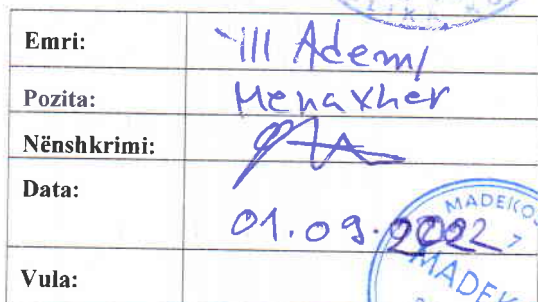 Emri: Ill Ademi
Pozita: Menaxher
Nënshkrimi:
Data: 01.09.2022
MADEKOS
MADEK
Vula: